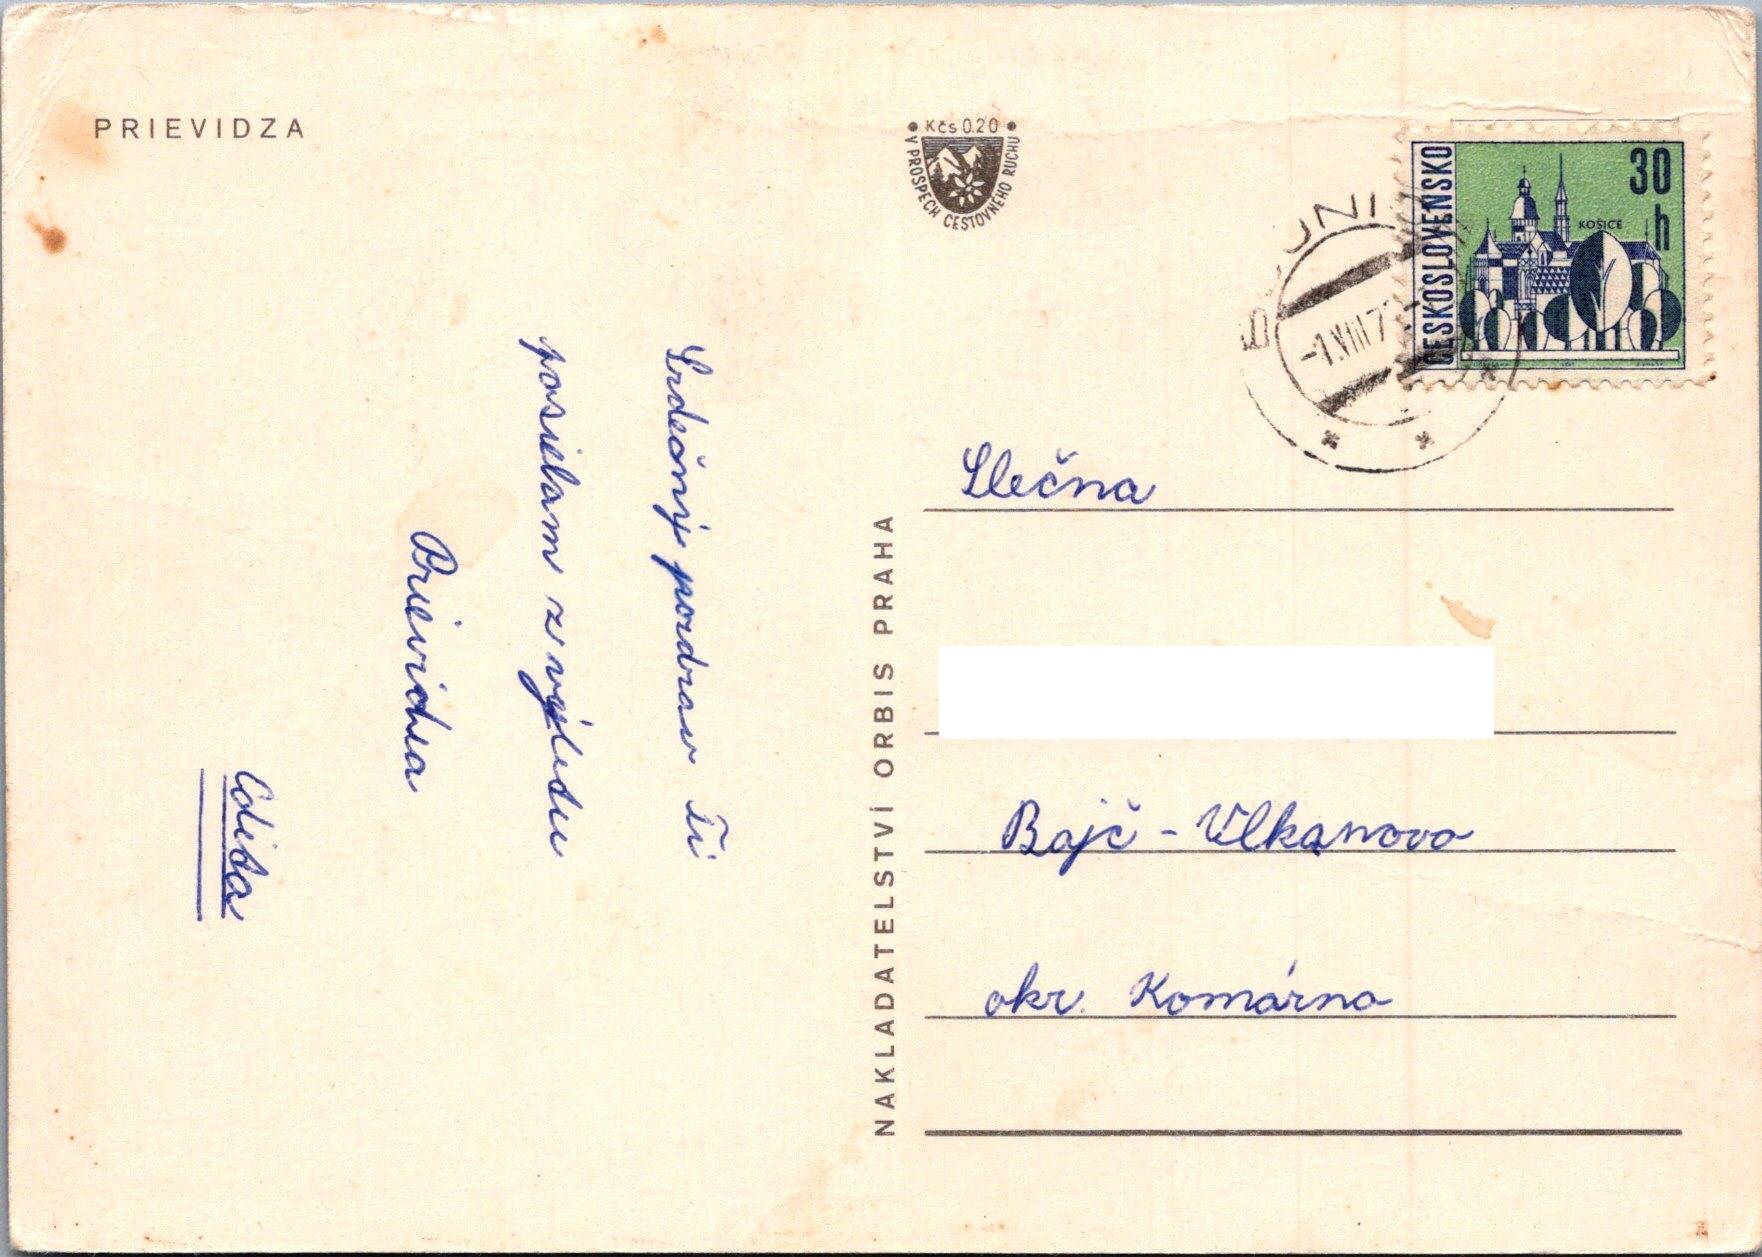 PRIEVIDZA
Srdečný pozdrav Ti
posielam z výletu
Prievidza
Edita
Kčs 0.20
V PROSPECH CESTOVNÉHO RUCHU
NAKLADATELSTVÍ ORBIS PRAHA
-1.VIII.7
ČESKOSLOVENSKO
30
h
KOŠICE
Slečna
Bajč - Vlkanovo
okr. Komárno